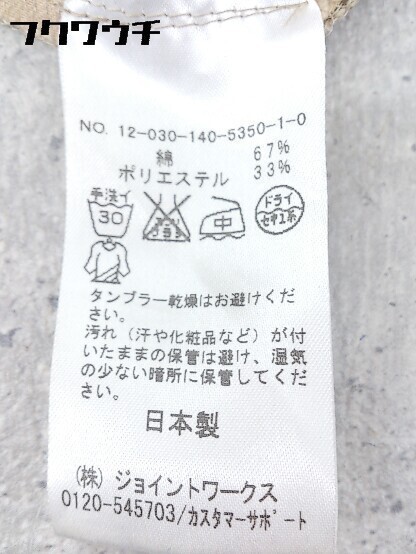 フクワウチ
NO. 12-030-140-5350-1-0
綿 67%
ポリエステル 33%
手洗イ
30
エンソ
サラシ
中
ドライ
セキユ系
タンブラー乾燥はお避けくだ
さい。
汚れ（汗や化粧品など）が付
いたままの保管は避け、湿気
の少ない暗所に保管してくだ
さい。
日本製
(株) ジョイントワークス
0120-545703/カスタマーサポート